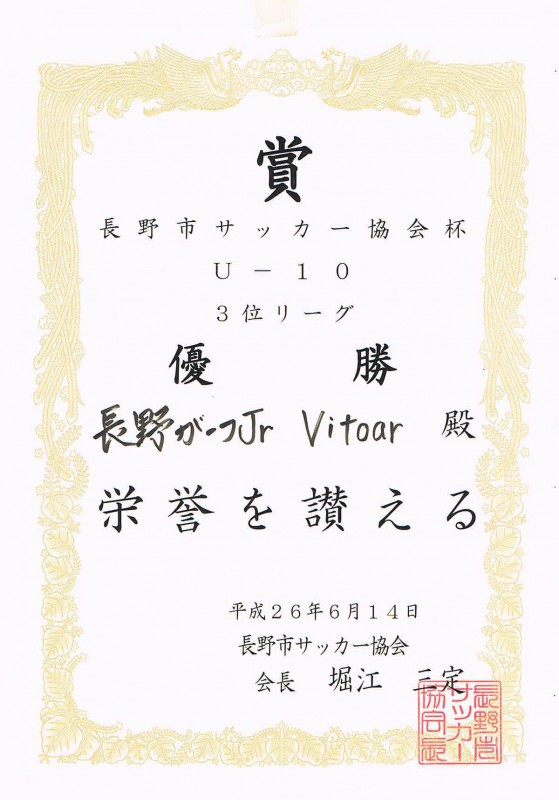 賞
長野市サッカー協会杯
U－10
3位リーグ
優勝
長野ガーフJr Vitoar 殿
栄誉を讃える
平成26年6月14日
長野市サッカー協会
会長 堀江 三定
長野市
サッカー
協会長